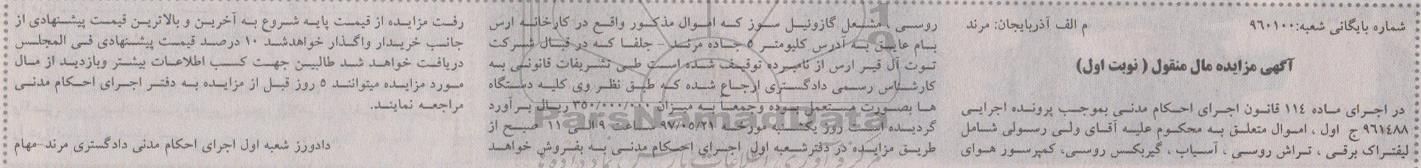 شماره بایگانی شعبه: ۹۶۰۱۰۰ م الف آذربایجان: مرند
آگهی مزایده مال منقول ( نوبت اول)
در اجرای ماده ۱۱۴ قانون اجرای احکام مدنی بموجب پرونده اجرایی
۹۶۱۴۸۸ ج اول ، اموال متعلق به محکوم علیه آقای ولی رسولی شامل
لیفتراک برقی ، تراش روسی ، آسیاب ، گیربکس روسی، کمپرسور هوای
روسی ، مشعل گازوئیل سوز که اموال مذکور واقع در کارخانه ارس
بام عایق به آدرس کلیومتر ۵ جاده مرند - جلفا که در قبال شرکت
توت آل قیر ارس از نامبرده توقیف شده است طی تشریفات قانونی به
کارشناس رسمی دادگستری ارجاع شده که طبق نظر وی کلیه دستگاه
ها بصورت مستعمل بوده وجمعا به میزان ۳۵۰/۰۰۰/۰۰۰ ریال برآورد
گردیده است روز یکشنبه مورخه ۹۷/۰۵/۲۱ ساعت ۹ الی ۱۱ صبح از
طریق مزایده در دفترشعبه اول اجرای احکام مدنی به بفروش خواهد
رفت مزایده از قیمت پایه شروع به آخرین و بالاترین قیمت پیشنهادی از
جانب خریدار واگذار خواهدشد ۱۰ درصد قیمت پیشنهادی فی المجلس
دریافت خواهد شد طالبین جهت کسب اطلاعات بیشتر وبازدید از مال
مورد مزایده میتوانند ۵ روز قبل از مزایده به دفتر اجرای احکام مدنی
مراجعه نمایند.
دادورز شعبه اول اجرای احکام مدنی دادگستری مرند-مهام
ParsNamadData